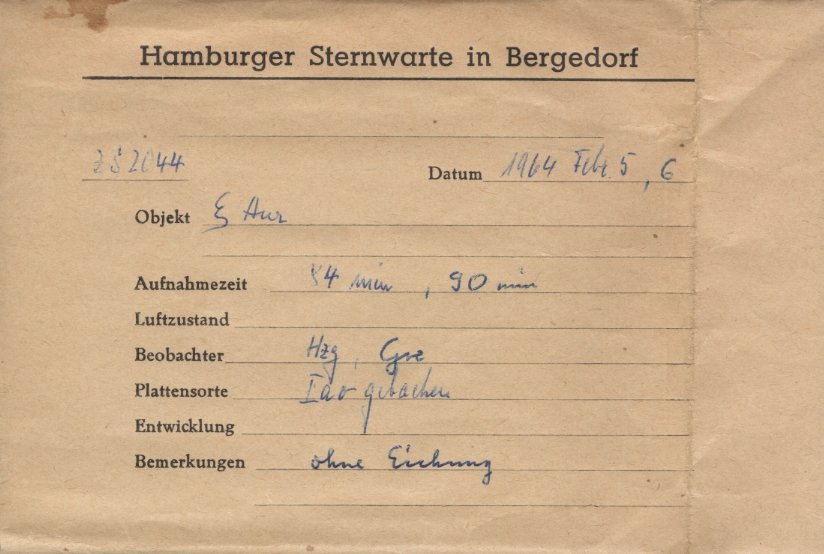 Hamburger Sternwarte in Bergedorf
ZS 2044 Datum 1964 Febr. 5, 6
Objekt ξ Aur
Aufnahmezeit 84 min, 90 min
Luftzustand
Beobachter Hzg, Gre
Plattensorte IaO gebacken
Entwicklung
Bemerkungen ohne Eichung